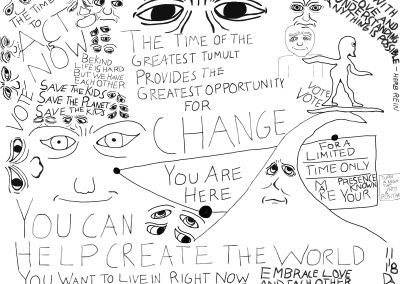 THE TIME
TO
ACT
NOW
VOTE
BE KIND
LIFE IS HARD
BUT WE HAVE
EACH OTHER
SAVE THE KIDS
SAVE THE PLANET
SAVE THE KIDS
THE TIME OF THE
GREATEST TUMULT
PROVIDES THE
GREATEST OPPORTUNITY
FOR
CHANGE
WITH
LOVE AND
UNDERSTANDING
ANYTHING IS POSSIBLE
- HERB REIN
VOTE
VOTE
YOU ARE
HERE
FOR A
LIMITED
TIME ONLY
MAKE YOUR
PRESENCE
KNOWN
YOU CAN
HELP CREATE THE WORLD
YOU WANT TO LIVE IN RIGHT NOW
EMBRACE LOVE
AND EACH OTHER